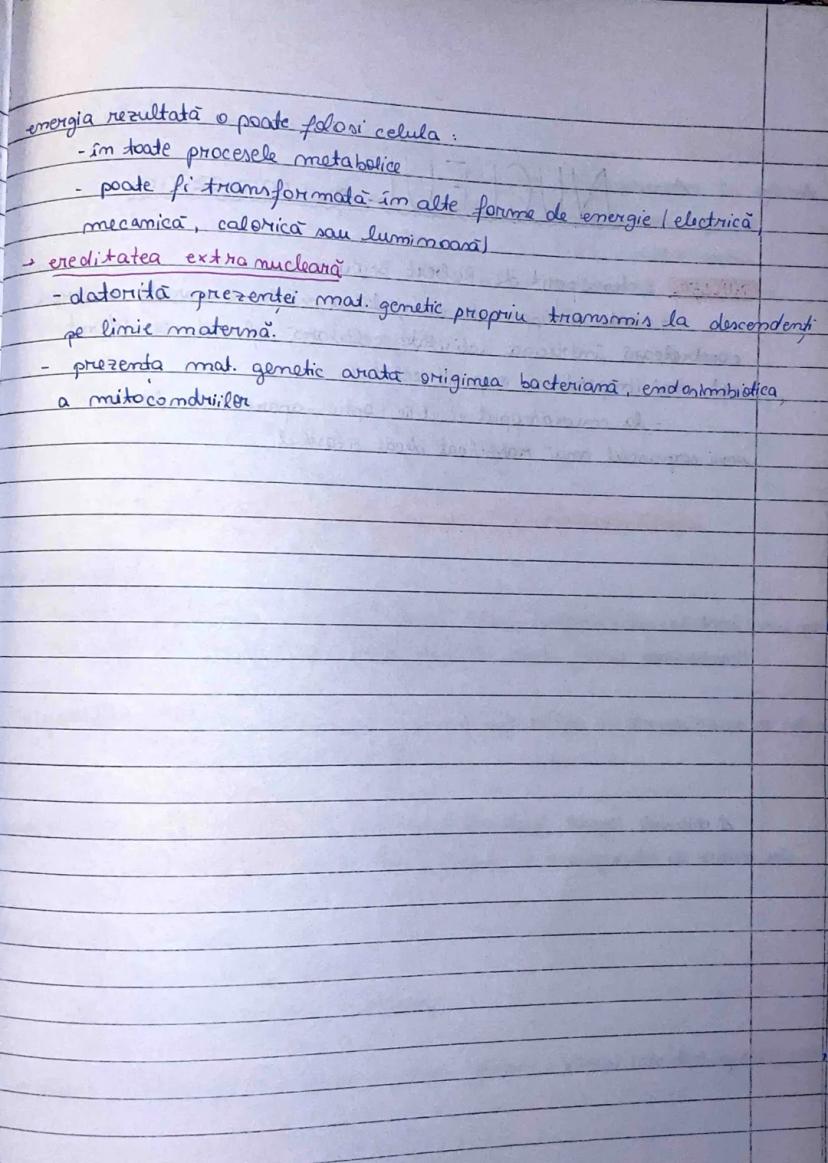 energia rezultată o poate folosi celula :
- în toate procesele metabolice
- poate fi transformată în alte forme de energie (electrică,
mecanică, calorică sau luminoasă)
→ ereditatea extranucleară
- datorită prezenței mat. genetic propriu transmis la descendenți
pe linie maternă.
- prezența mat. genetic arată originea bacteriană, endosimbiotica,
a mitocondriilor